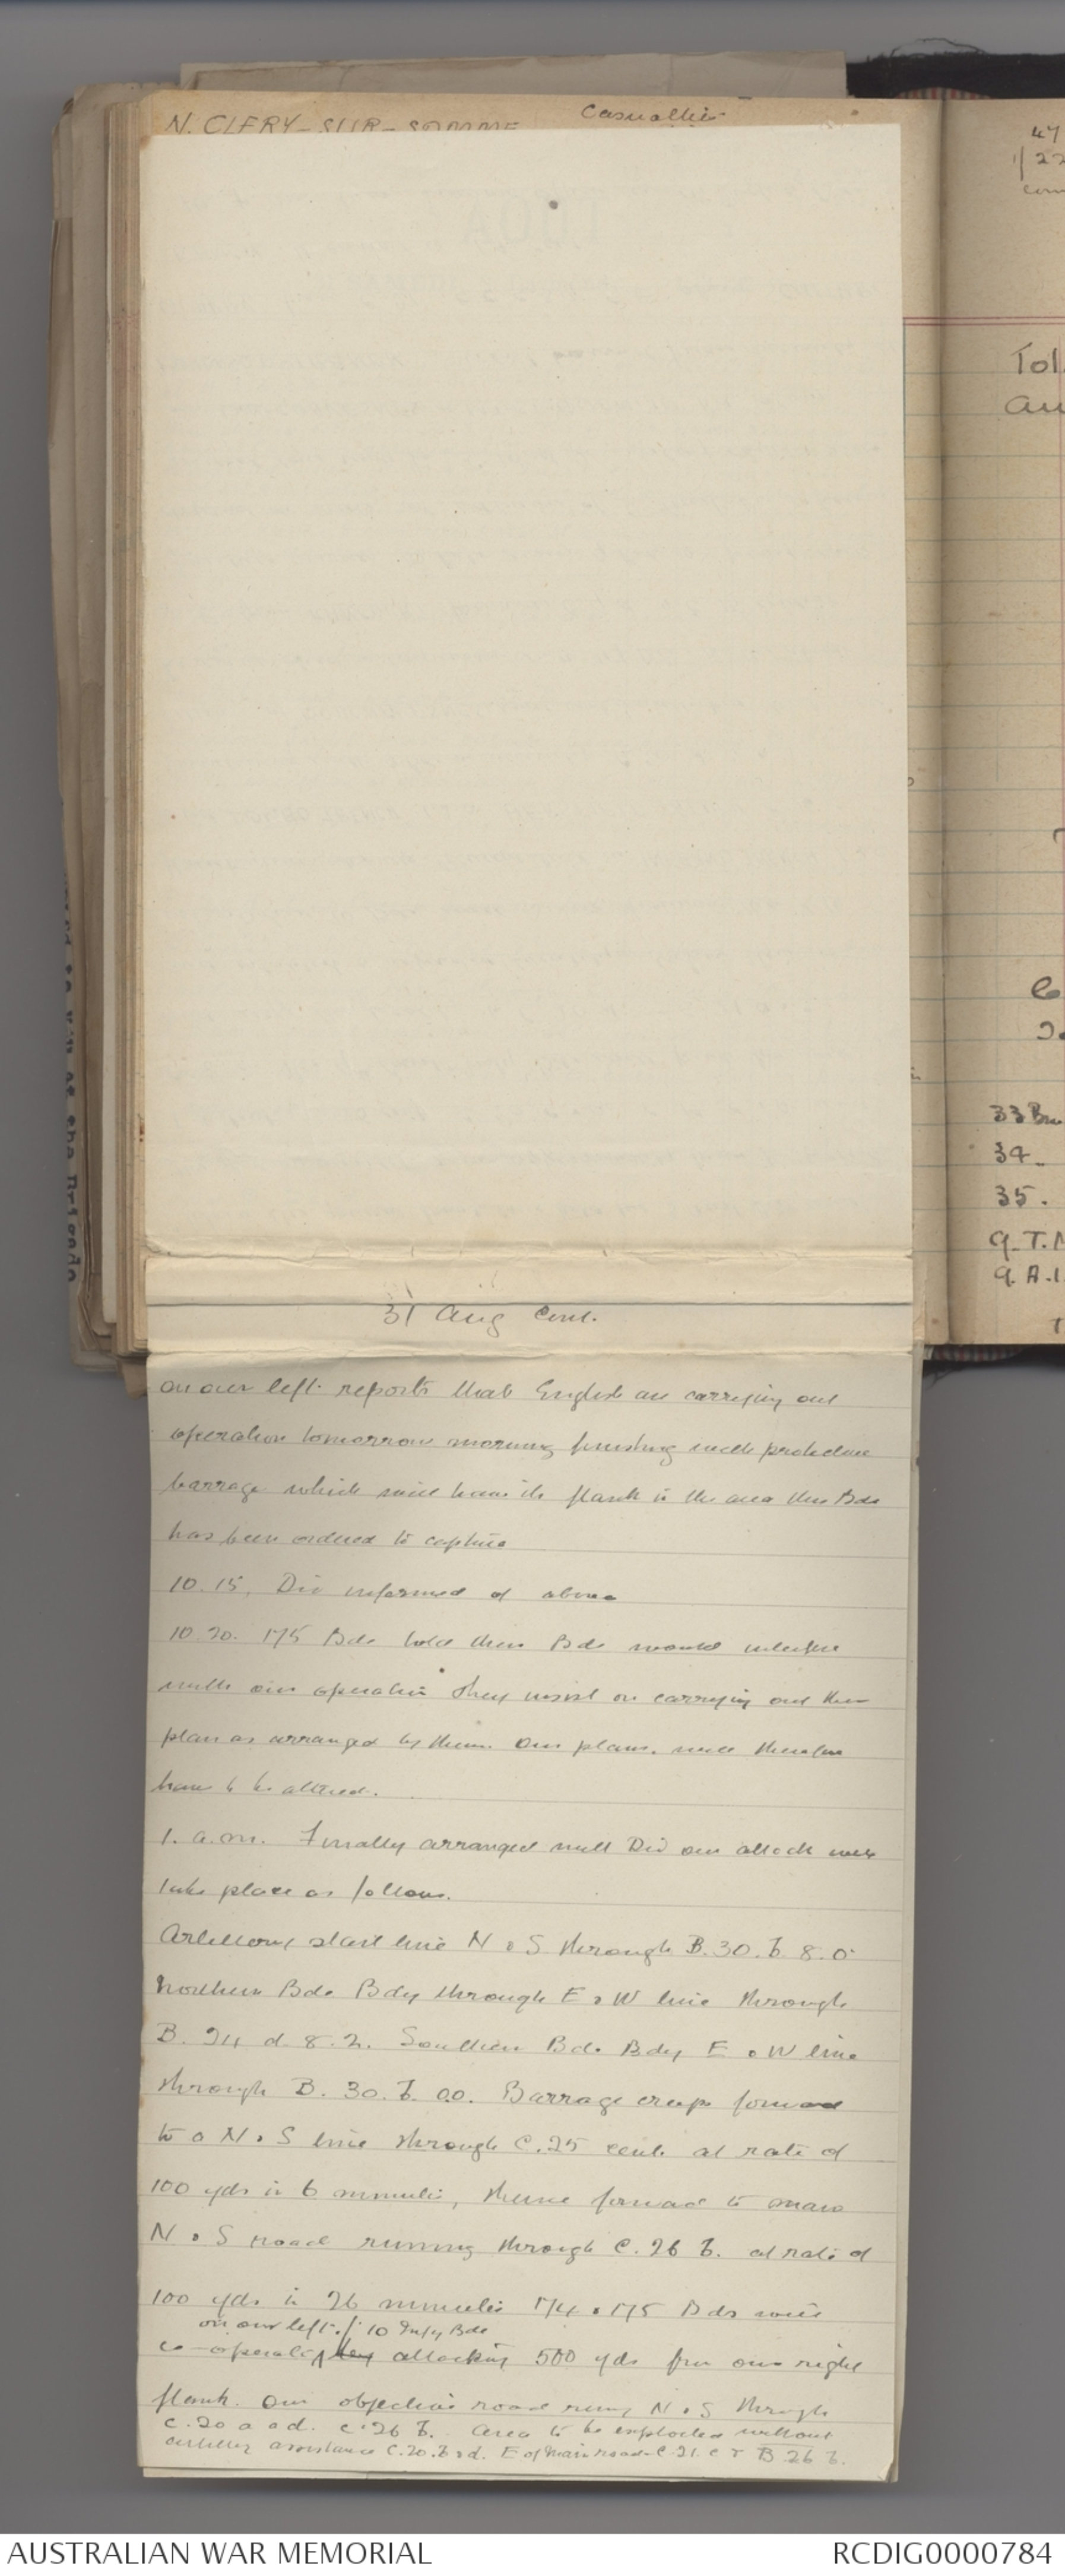 N. CLERY-SUR-SOMME Casualties
31 Aug Cont.
on our left reports that English are carrying out
operation tomorrow morning finishing with protective
barrage which will have its flank in the area this Bde
has been ordered to capture
10.15. Div informed of above
10.20. 175 Bde told their Bde would interfere
with our operation They insist on carrying out their
plan as arranged by them. Our plans will therefore
have to be altered.
1. a.m. Finally arranged with Div our attack will
take place as follows.
Artillery start line N & S through B.30.b 8.0
Northern Bde Bdy through E & W line through
B. 24 d. 8.2. Southern Bde Bdy E & W line
through B. 30. b. 00. Barrage creeps forward
to a N & S line through C.25 cent. at rate of
100 yds in 6 minutes, thence forward to main
N & S road running through C. 26 b. at rate of
100 yds in 26 minutes 174 & 175 Bdes will
on our left. / 10 Infy Bde
co-operate attacking 500 yds from our right
flank. Our objective road runng N & S through
C.20 a & d. C.26 b. Area to be exploited without
artillery assistance C.20.b & d. E of main road C.21. c & B 26 b.
47
1/22
Tol
au
33 Bn
34.
35.
9. T.M
9. A.
AUSTRALIAN WAR MEMORIAL
RCDIG0000784